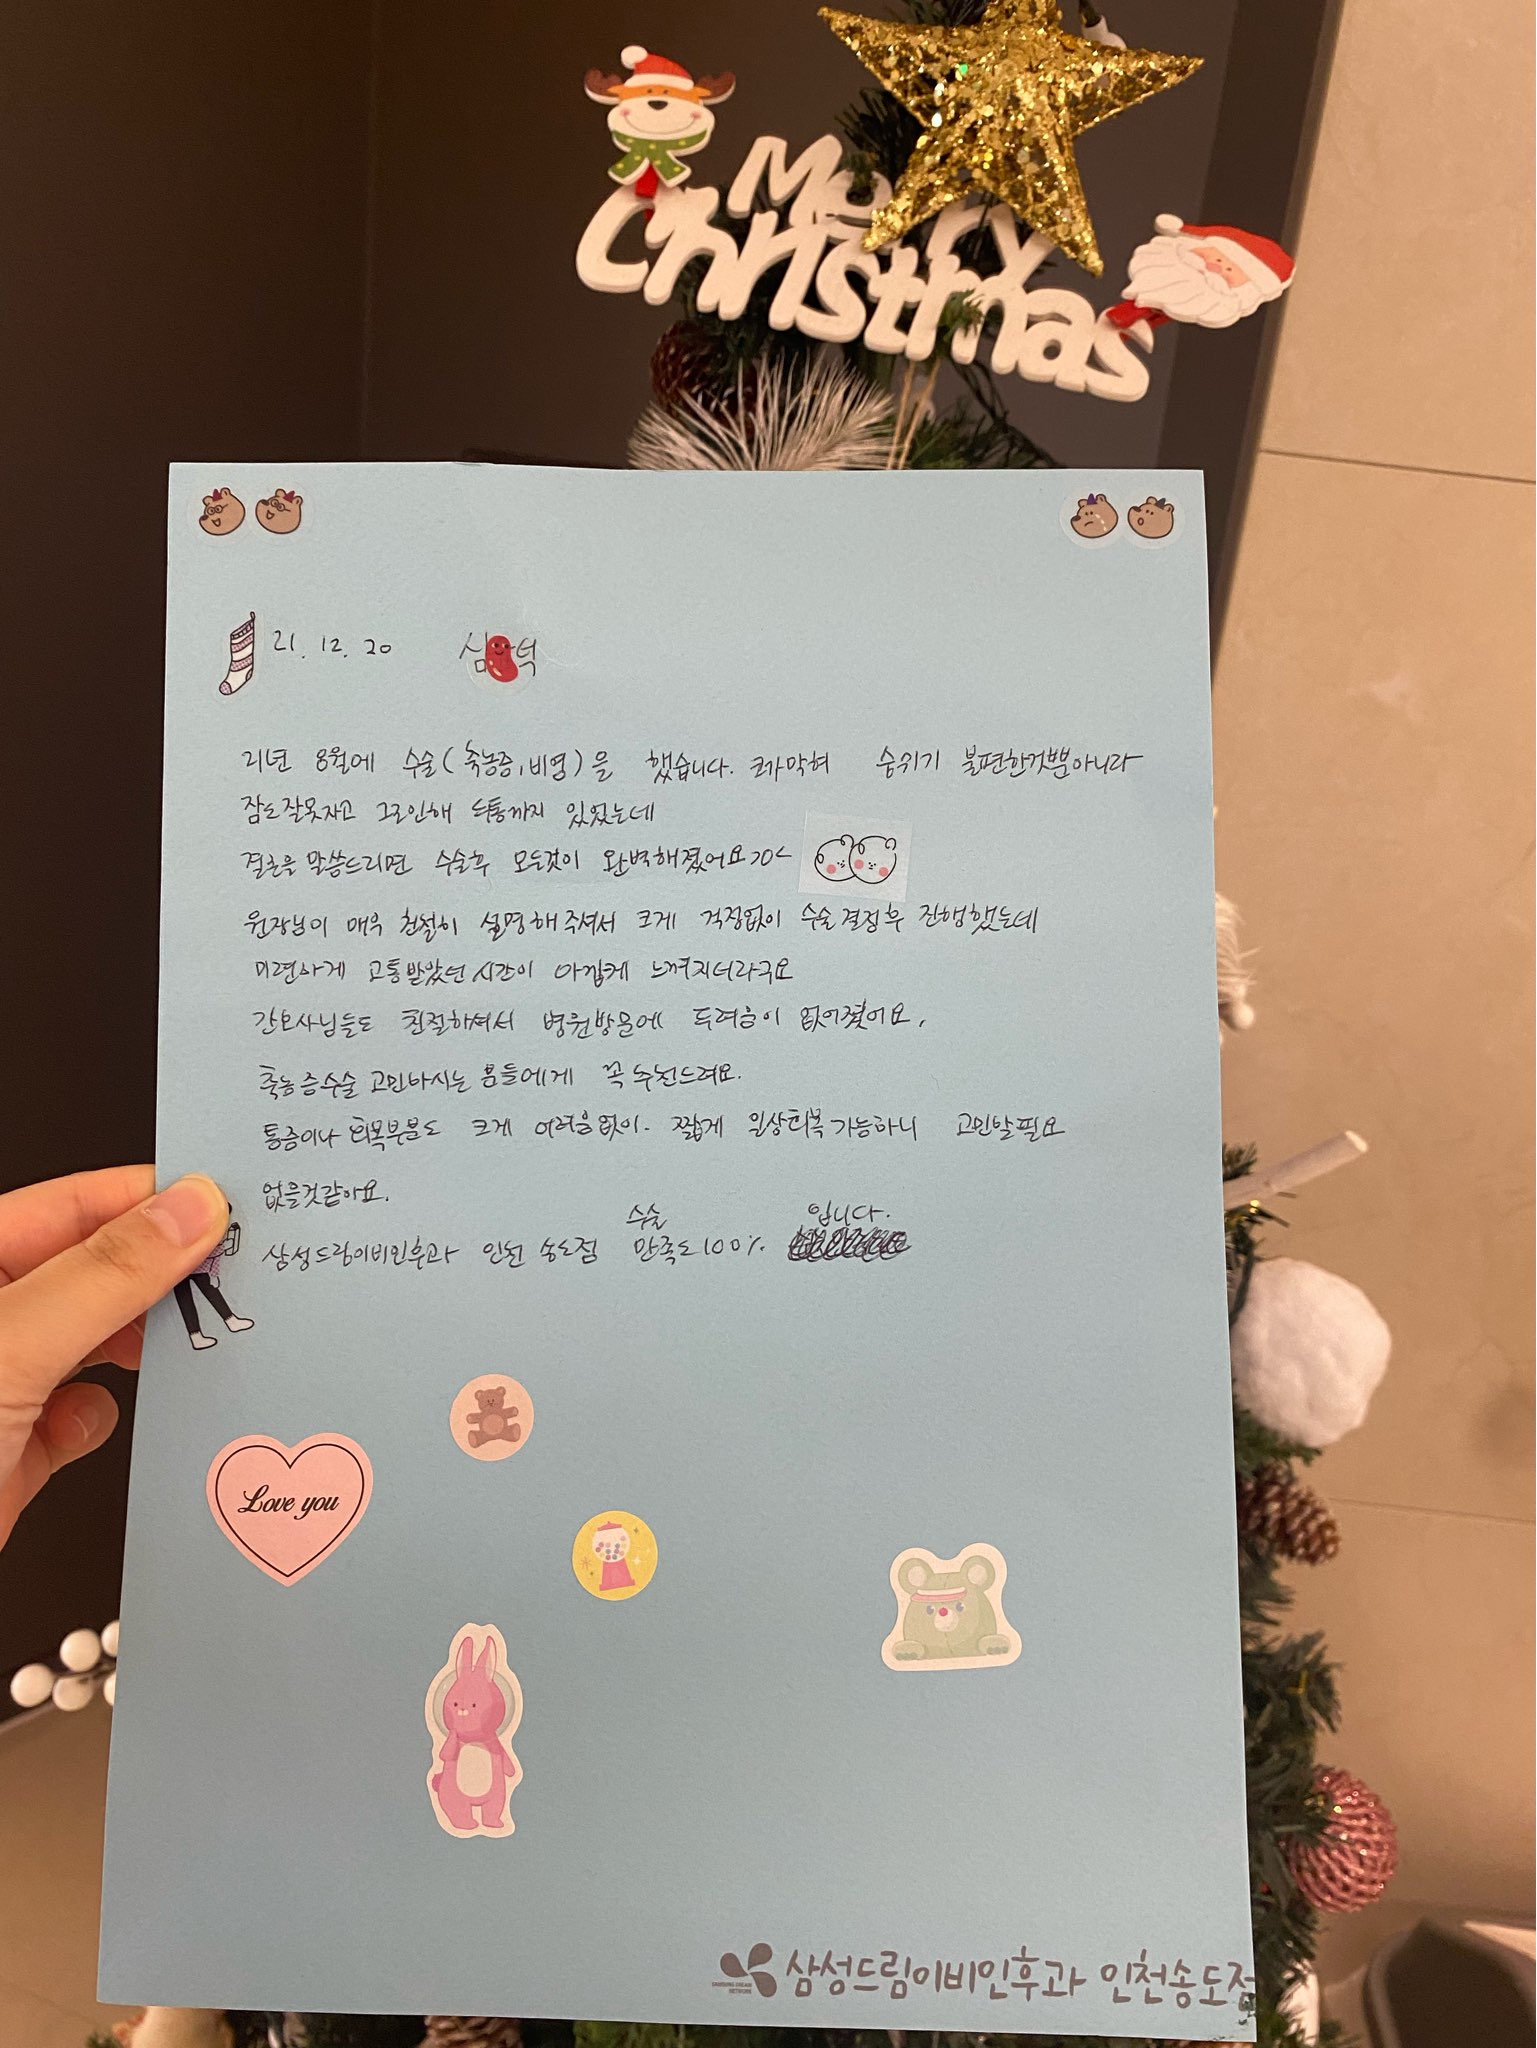 Merry
Christmas
21. 12. 20
21년 8월에 수술(축농증, 비염)을 했습니다. 코가막혀 숨쉬기 불편한것뿐아니라
잠도잘못자고 그로인해 두통까지 있었는데
결론을 말씀드리면 수술후 모든것이 완벽해졌어요>o<
원장님이 매우 친절히 설명해주셔서 크게 걱정없이 수술결정후 진행했는데
미련하게 고통받았던 시간이 아깝게 느껴지더라구요
간호사님들도 친절하셔서 병원방문에 두려움이 없어졌어요.
축농증수술 고민하시는 분들에게 꼭 추천드려요.
통증이나 회복부분도 크게 어려움없이. 짧게 일상회복 가능하니 고민할필요
없을것같아요.
삼성드림이비인후과 인천 송도점 수술 만족도 100% 입니다.
Love you
SAMSUNG DREAM NETWORK
삼성드림이비인후과 인천송도점